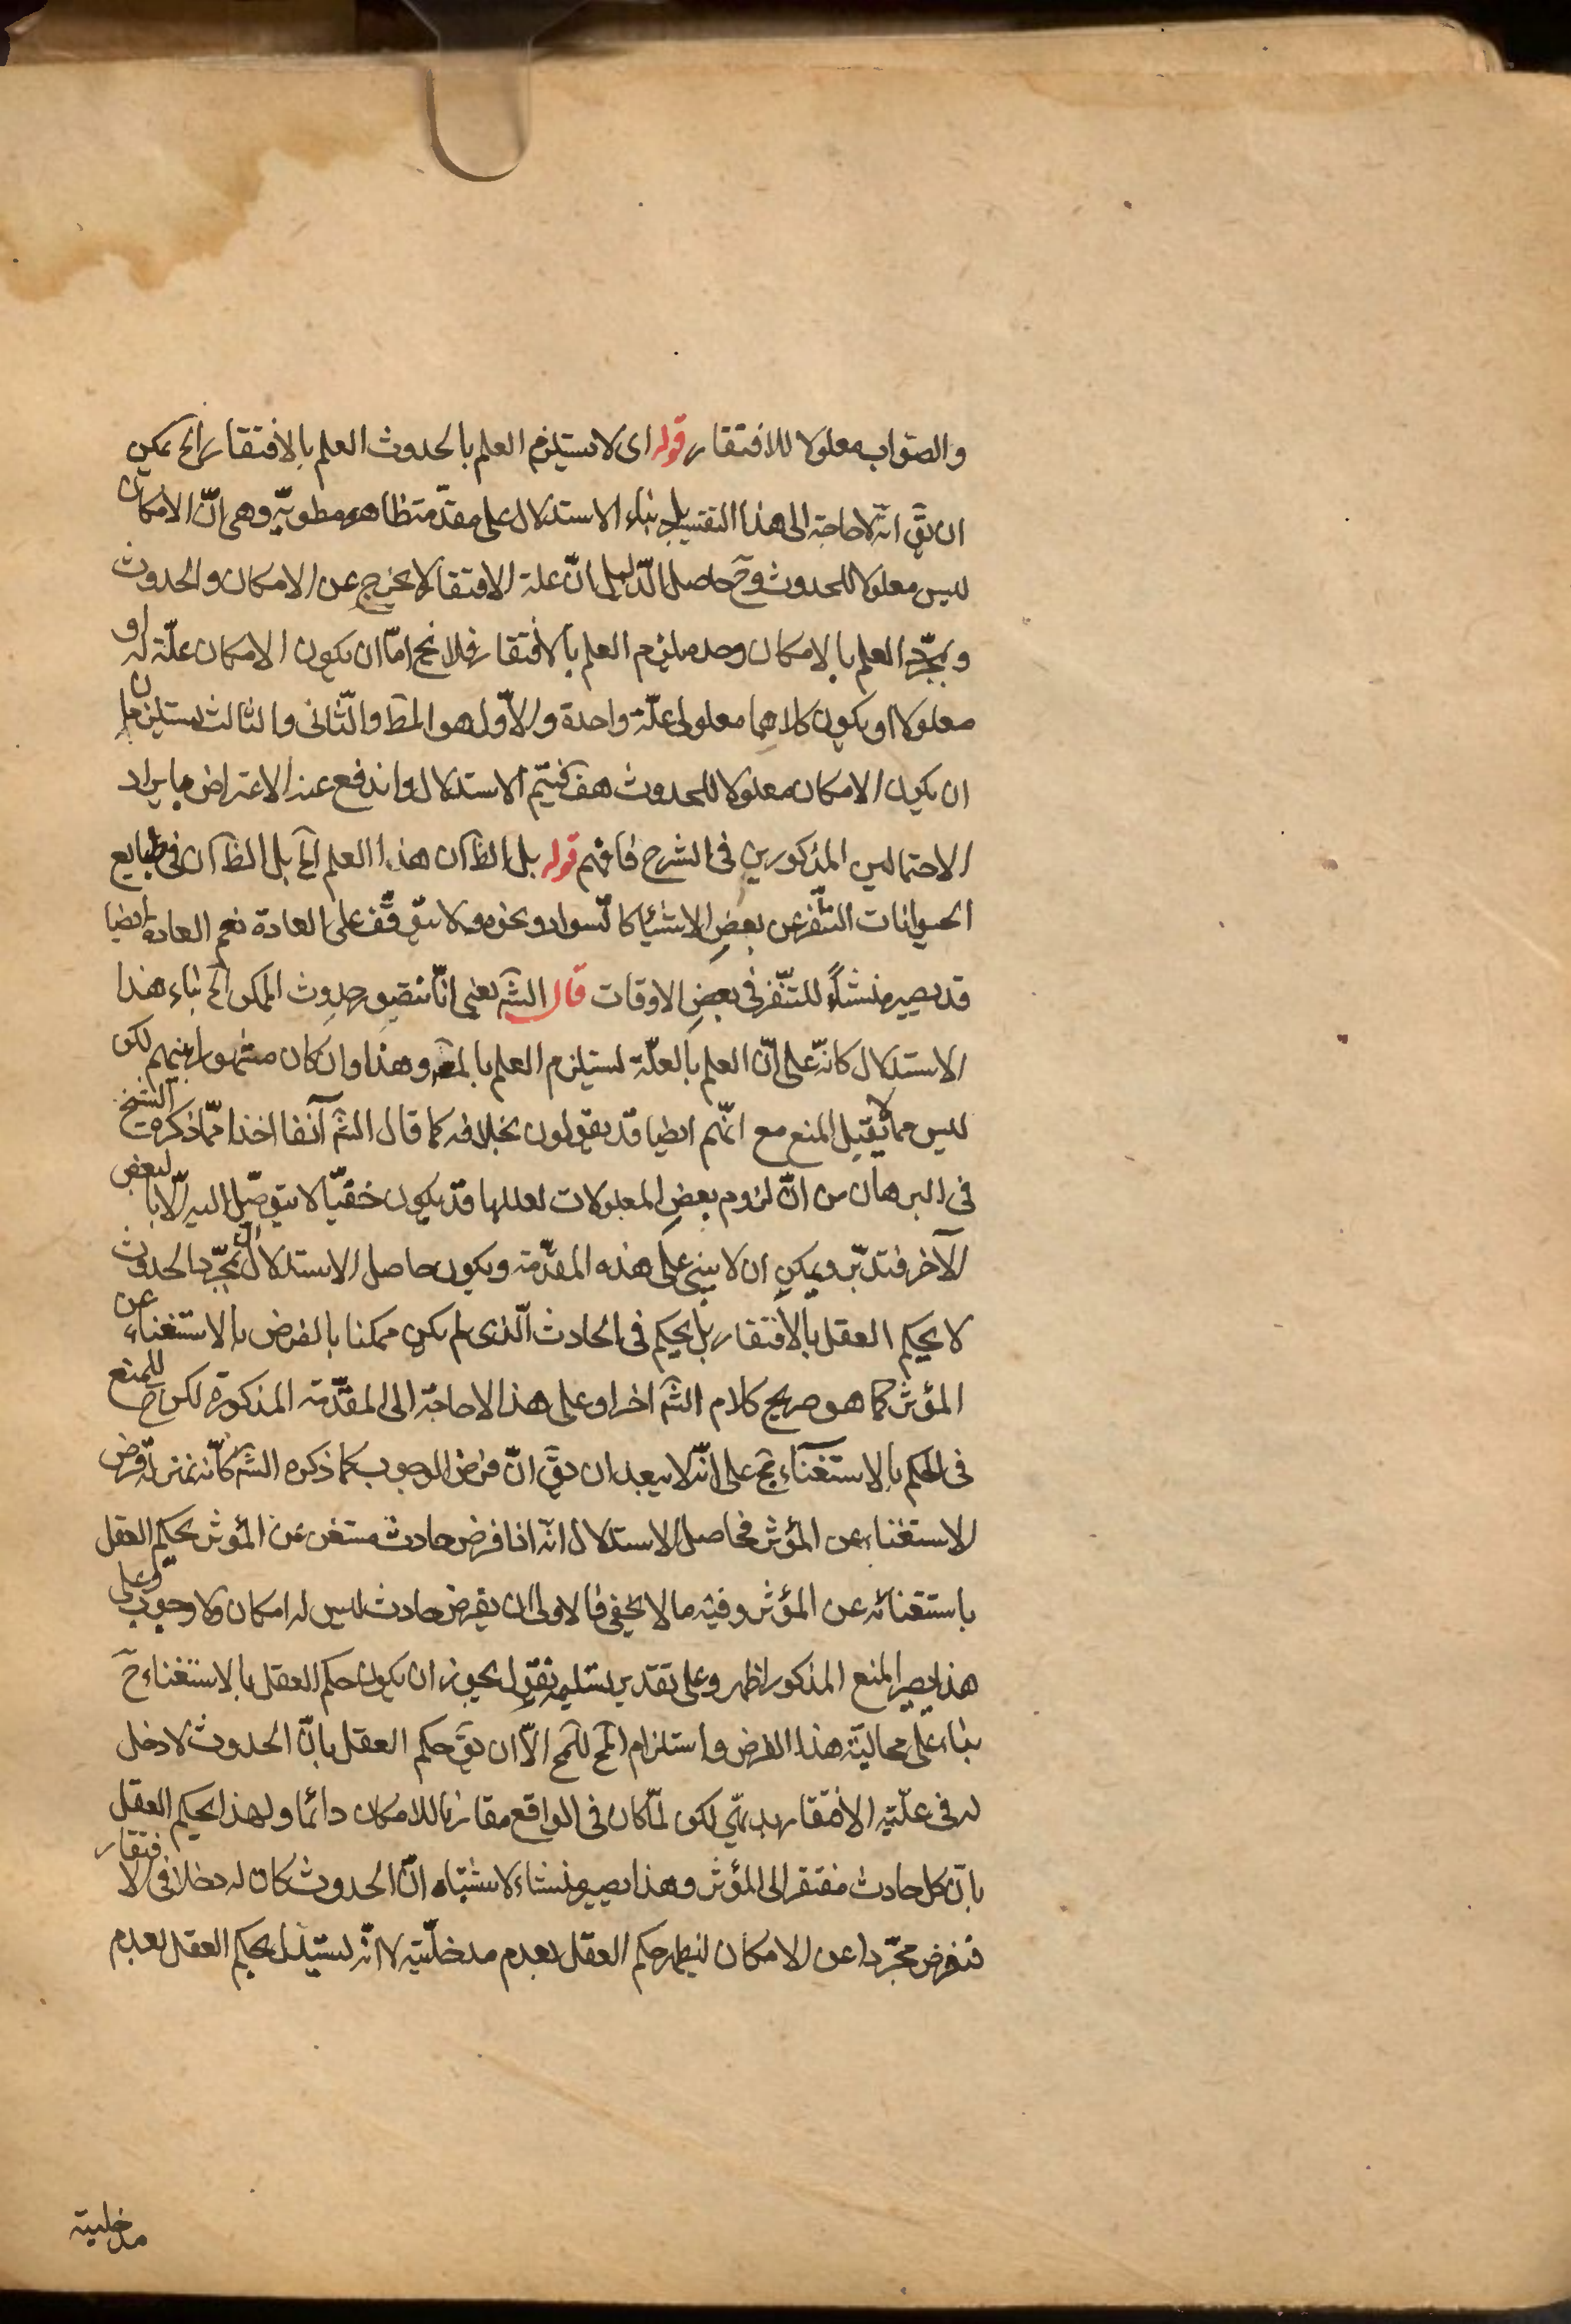 والصواب معلولا للافتقار قوله اى لا يستلزم العلم بالحدوث العلم بالافتقار الخ يمكن
ان يقّ انّه لا حاجة الى هذا التقييد بل بناء الاستدلال على مقدّمة ظاهرة مطويّة وهى انّ الامكان
ليس معلولا للحدوث وحّ حاصل الدّليل انّ علة الافتقار لا يخرج عن الامكان والحدوث
وبمجرّد العلم بالامكان وحده يلزم العلم بالافتقار فلا يخ امّا ان يكون الامكان علّة له او
معلولا او يكون كلاهما معلولى علّة واحدة والاوّل هو المط والثّانى والثالث يستلزمان
ان يكون الامكان معلولا للحدوث هف فيتم الاستدلال واندفع عنه الاعتراض بايراد
الاحتمالين المذكورين فى الشرح فافهم قوله بل الظ ان هذا العلم الخ بل الظ ان فى طبايع
الحيوانات التنّفر عن بعض الاشياء كالسواد ونحوه ولا يتوقّف على العادة نعم العادة ايضا
قد يصير منشأ للتنّفر فى بعض الاوقات قال الشّه يعنى انّا نتصور حدوث الممكن الخ بناء هذا
الاستدلال كانّه على انّ العلم بالعلّة يستلزم العلم بالمعه وهذا وان كان مشهورا بينهم لكن
ليس مما لا يقبل المنع مع انّهم ايضا قد يقولون بخلافه كما قال الشّه آنفا اخذا ممّا ذكره الشيخ
فى البرهان من انّ لزوم بعض المعلولات لعللها قد يكون خفيّا لا يتوصّل اليه الّا بالبعض
الآخر فتدبّر ويمكن ان لا يبنى على هذه المقدّمة ويكون حاصل الاستدلال انّ بمجرّد الحدوث
لا يحكم العقل بالافتقار بل يحكم فى الحادث الّذى لم يكن ممكنا بالفرض بالاستغناء عن
المؤثر كما هو صريح كلام الشّه اخرا وعلى هذا لا حاجة الى المقدّمة المذكورة لكن للمنع
فى الحكم بالاستغناء مج على انّه لا يبعد ان يقّ انّ فرض الوجوب كما ذكره الشّه كانّه بمنزلة فرض
الاستغناء عن المؤثر فحاصل الاستدلال انّه اذا فرض حادث مستغن عن المؤثر يحكم العقل
باستغنائه عن المؤثر وفيه ما لا يخفى فالاولى ان يفرض حادث ليس له امكان ولا وجوب وعلى
هذا يصير المنع المذكور اظهر وعلى تقدير تسليمه نقول يجوز ان يكون حكم العقل بالاستغناء حّ
بناء على محاليّة هذا الفرض واستلزام المح للمح الّا ان يقّ حكم العقل بانّ الحدوث لا دخل
له فى علّية الافتقار بديهىّ لكن لمّا كان فى الواقع مقارنا للامكان دائما ولهذا يحكم العقل
بانّ كل حادث مفتقر الى المؤثر وهذا يصير منشاء لاشتباه انّ الحدوث كان له دخلا فى الافتقار
فنفرض مجرّدا عن الامكان ليظهر حكم العقل بعدم مدخليّته لا انّه يستدل بحكم العقل بعدم
مدخليته